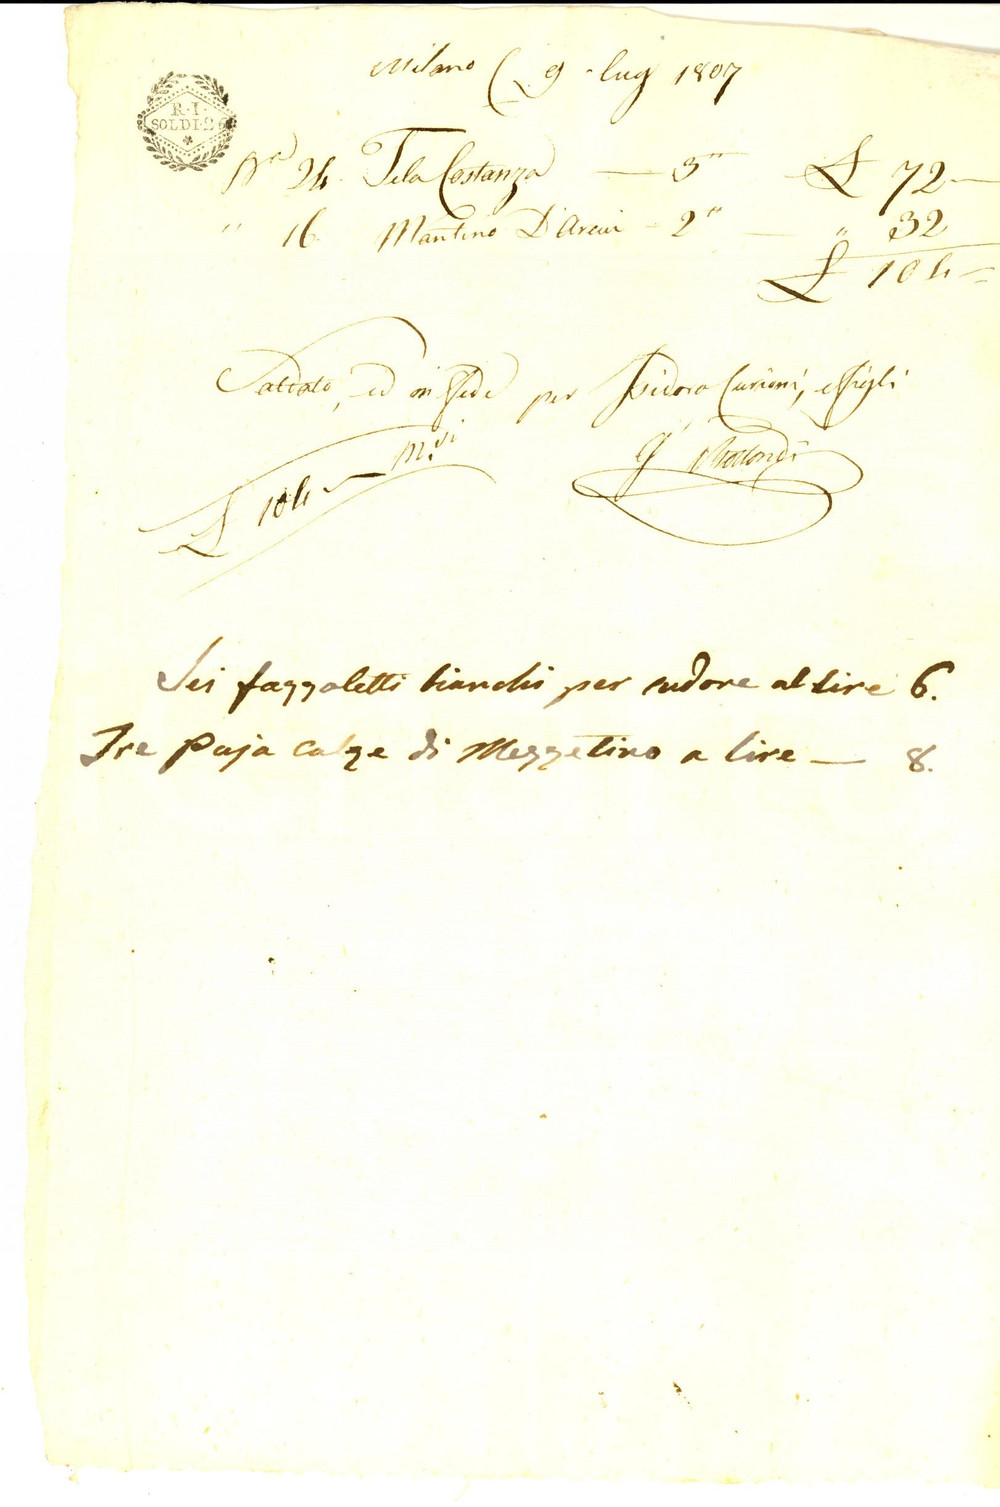 Milano 9 lug 1807
R. I.
SOLDI. 26
N.o 24. Tela Costanza — 3" £ 72 —
" 16. Mantino D' — 2" — " 32
£ 104 =
Saldato, ed in fede per Isidoro Curioni, e figli
£ 104 — M.
G
Sei fazzoletti bianchi per sudore al lire 6.
Tre paja calze di Mezzetino a lire — 8.